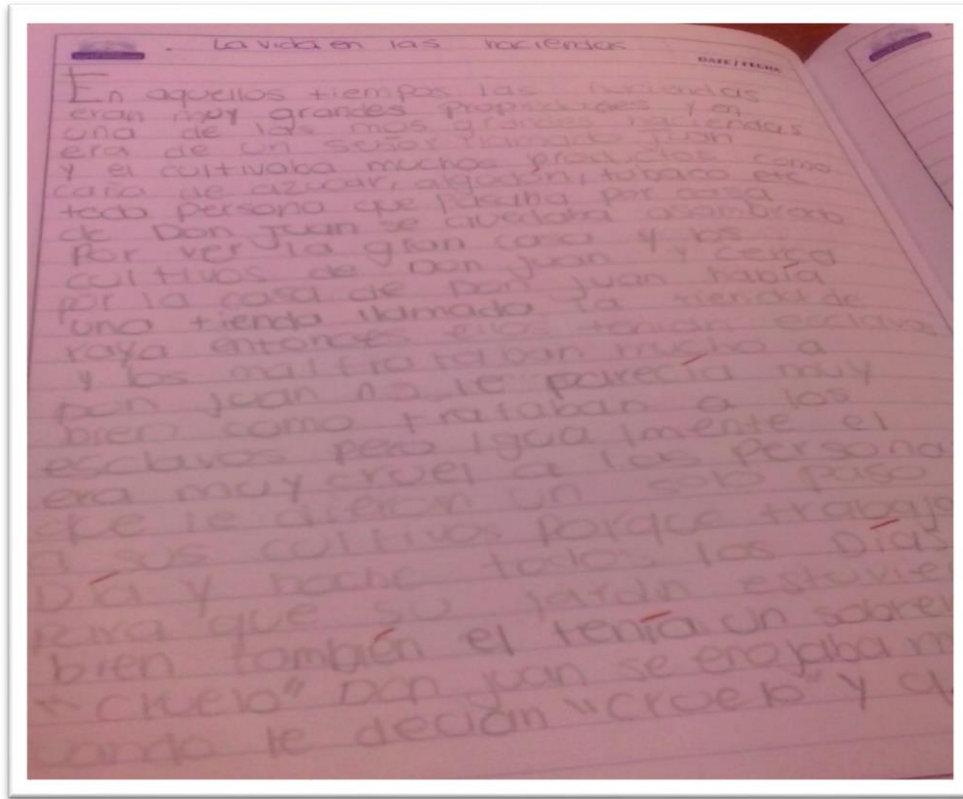 La vida en las haciendas
DATE / FECHA
En aquellos tiempos las haciendas
eran muy grandes propiedades y en
una de las mas grandes haciendas
era de un señor llamado Juan
y el cultivaba muchos productos como
caña de azucar, algodon, tobaco etc
todo persona que pasaba por casa
de Don Juan se quedaba asombrado
Por ver la gran casa y los
cultivos de Don Juan y cerca
por la casa de Don Juan había
una tienda llamada la tienda de
raya entonces ellos tenian esclavos
y los maltrataban mucho a
Don Juan no le parecía muy
bien como trataban a los
esclavos pero igualmente el
era muy cruel a las persona
que le dieron un solo paso
a sus cultivos porque trabajo
Día y noche todos los Días
para que su jardin estuvie
bien también el tenía un sobre
"cruelo" Don Juan se enojaba m
uando le decian "cruelo" y